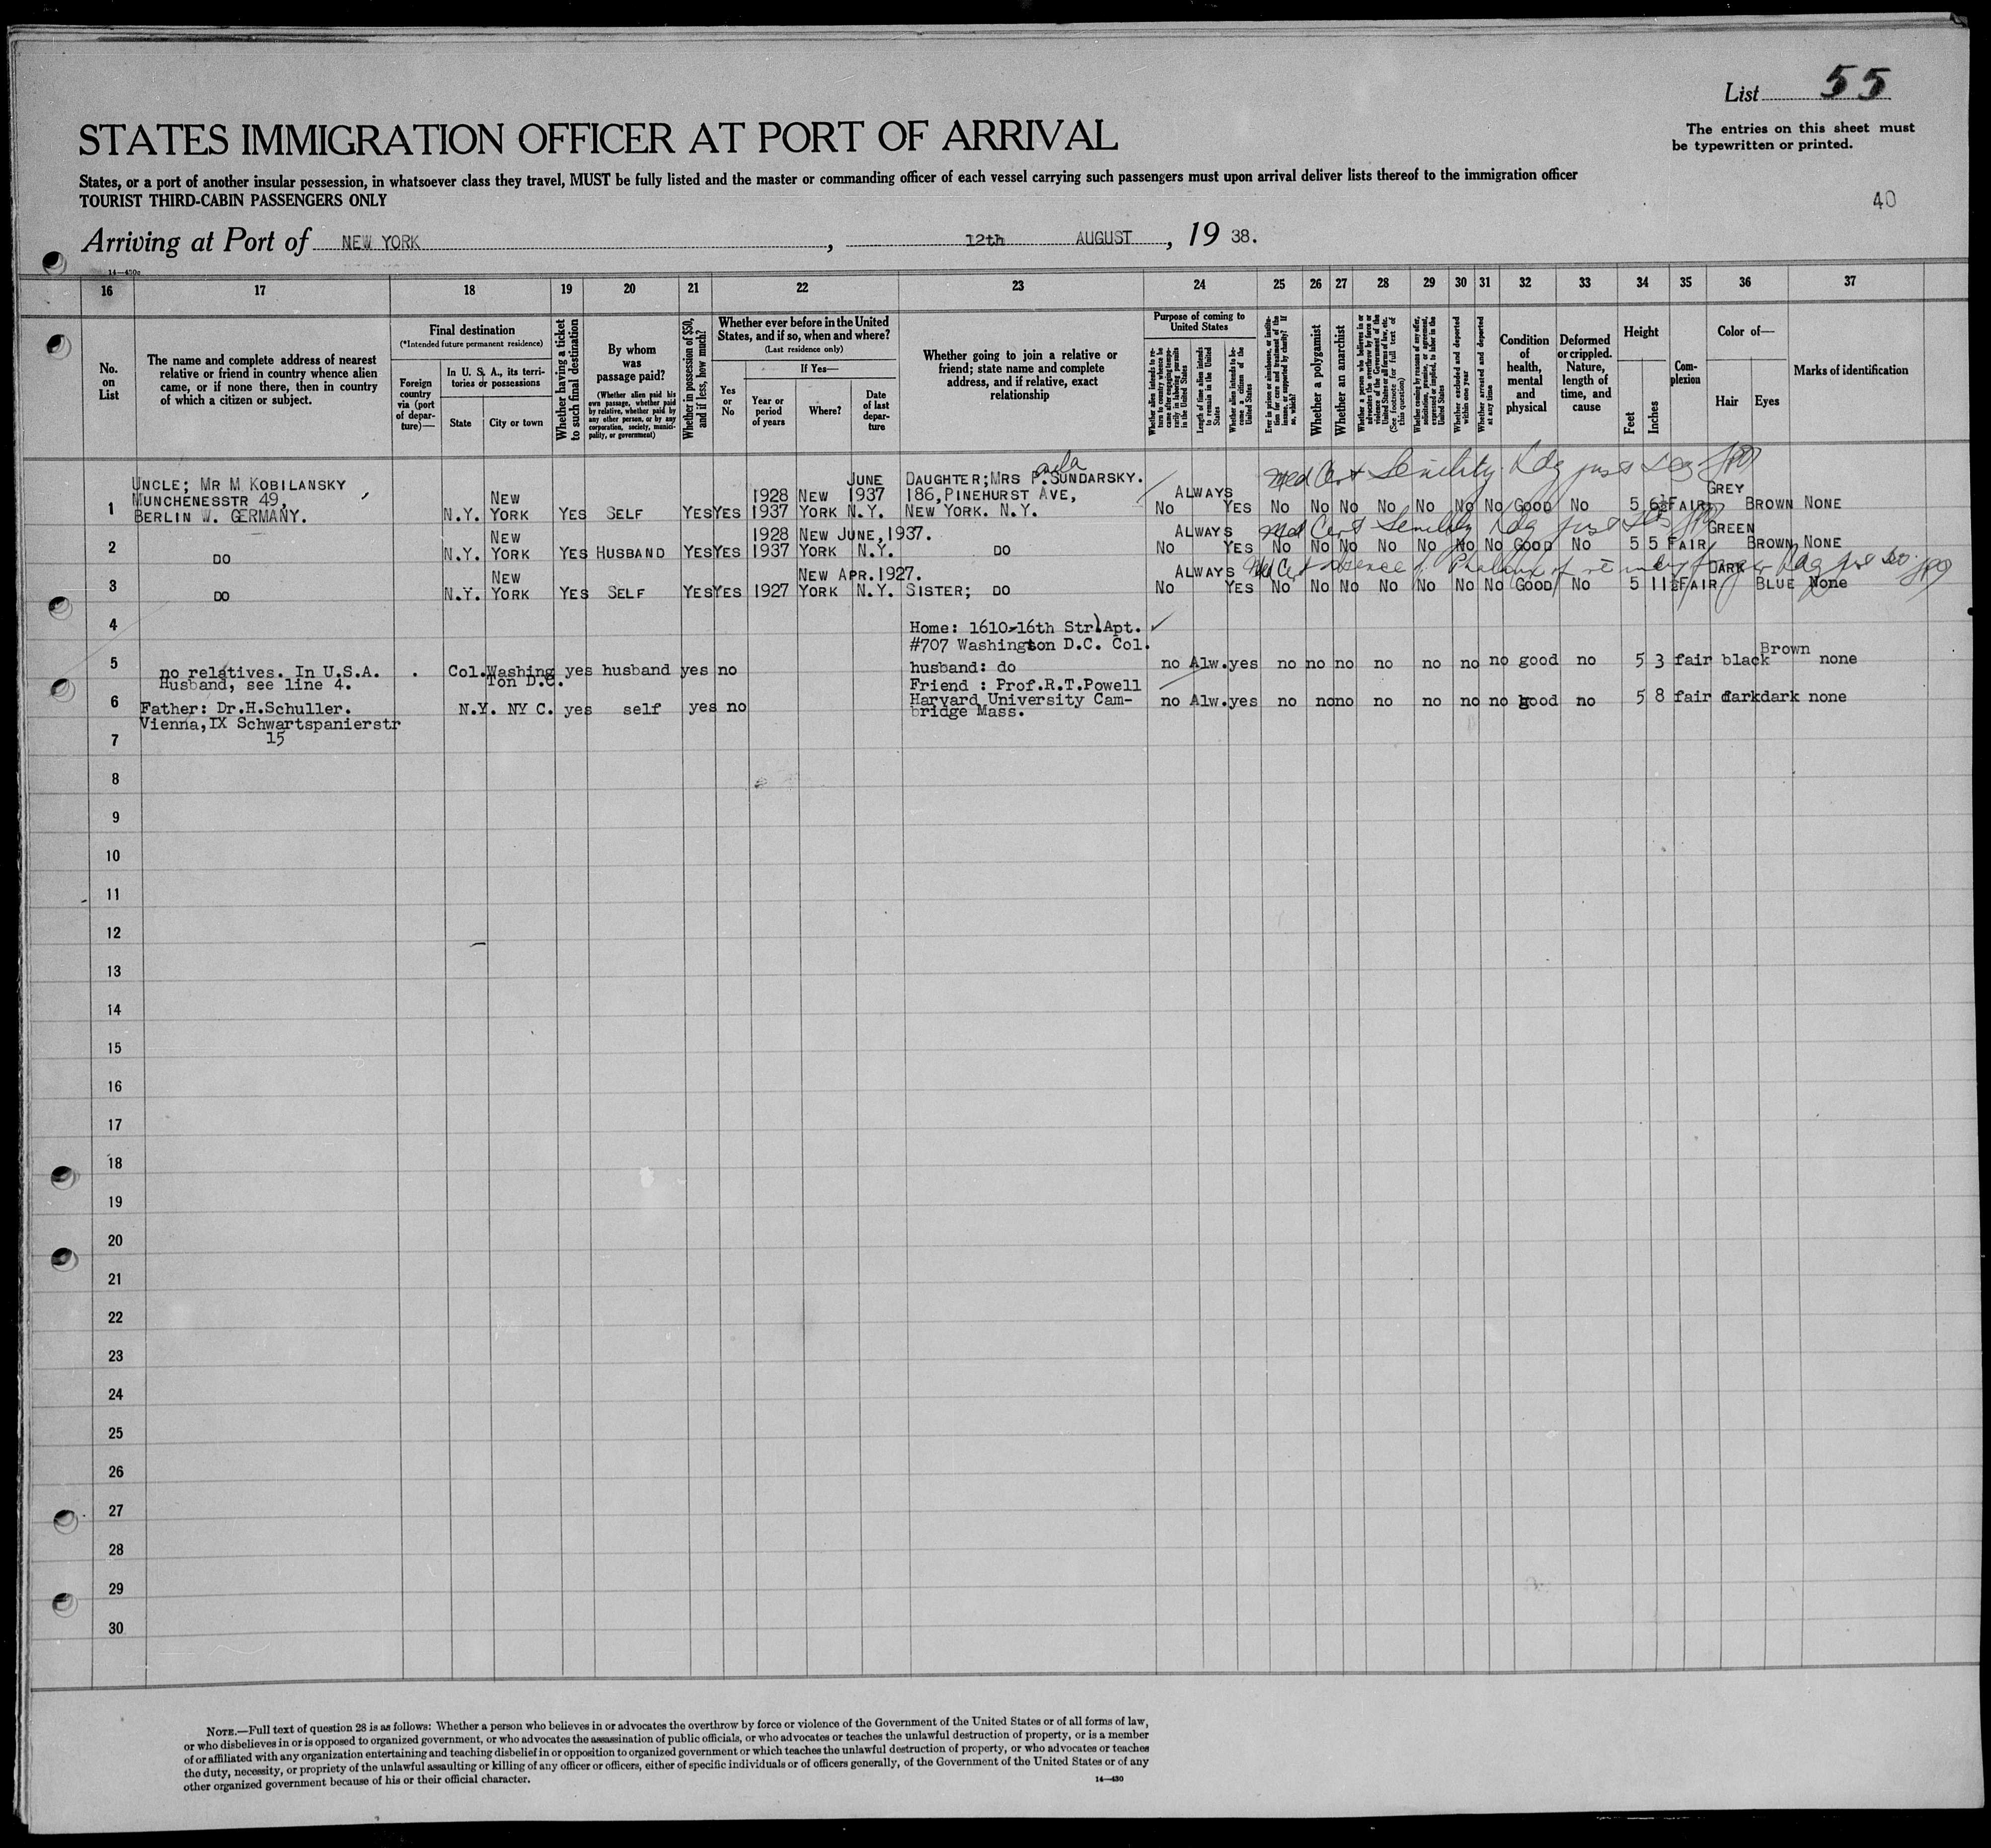 List 55
The entries on this sheet must
be typewritten or printed.
STATES IMMIGRATION OFFICER AT PORT OF ARRIVAL
States, or a port of another insular possession, in whatsoever class they travel, MUST be fully listed and the master or commanding officer of each vessel carrying such passengers must upon arrival deliver lists thereof to the immigration officer
TOURIST THIRD-CABIN PASSENGERS ONLY
40
Arriving at Port of NEW YORK, 12th AUGUST, 19 38.
14—430a
16 17 18 19 20 21 22 23 24 25 26 27 28 29 30 31 32 33 34 35 36 37
No.
on
List
The name and complete address of nearest
relative or friend in country whence alien
came, or if none there, then in country
of which a citizen or subject.
Final destination
(*Intended future permanent residence)
Foreign
country
via (port
of depar-
ture)—
In U. S. A., its terri-
tories or possessions
State
City or town
Whether having a ticket
to such final destination
By whom
was
passage paid?
(Whether alien paid his
own passage, whether paid
by relative, whether paid by
any other person, or by any
corporation, society, munici-
pality, or government)
Whether in possession of $50,
and if less, how much?
Whether ever before in the United
States, and if so, when and where?
(Last residence only)
Yes
or
No
If Yes—
Year or
period
of years
Where?
Date
of last
depar-
ture
Whether going to join a relative or
friend; state name and complete
address, and if relative, exact
relationship
Purpose of coming to
United States
Whether alien intends to re-
turn to country whence he
came after engaging tempo-
rarily in laboring pursuits
in the United States
Length of time alien intends
to remain in the United
States
Whether alien intends to be-
come a citizen of the
United States
Ever in prison or almshouse, or institu-
tion for care and treatment of the
insane, or supported by charity? If
so, which?
Whether a polygamist
Whether an anarchist
Whether a person who believes in or
advocates the overthrow by force or
violence of the Government of the
United States or all forms of law, etc.
(See footnote for full text of
this question)
Whether coming by reason of any offer,
solicitation, promise, or agreement,
expressed or implied, to labor in the
United States
Whether excluded and deported
within one year
Whether arrested and deported
at any time
Condition
of
health,
mental
and
physical
Deformed
or crippled.
Nature,
length of
time, and
cause
Height
Feet
Inches
Com-
plexion
Color of—
Hair
Eyes
Marks of identification
UNCLE; MR M KOBILANSKY JUNE DAUGHTER; MRS P. SUNDARSKY. Med Cert Senility
MUNCHENESSTR 49, NEW 1928 NEW 1937 186, PINEHURST AVE, ALWAYS GREY
1 BERLIN W. GERMANY. N.Y. YORK YES SELF YES YES 1937 YORK N.Y. NEW YORK. N.Y. NO YES NO NO NO NO NO NO NO GOOD NO 5 6½ FAIR BROWN NONE
NEW 1928 NEW JUNE, 1937. ALWAYS Med Cert Senility GREEN
2 DO N.Y. YORK YES HUSBAND YES YES 1937 YORK N.Y. DO NO YES NO NO NO NO NO NO NO GOOD NO 5 5 FAIR BROWN NONE
NEW NEW APR. 1927. ALWAYS Med Cert DARK
3 DO N.Y. YORK YES SELF YES YES 1927 YORK N.Y. SISTER; DO NO YES NO NO NO NO NO NO NO GOOD NO 5 11½ FAIR BLUE None
4 Home: 1610-16th Str. Apt.
#707 Washington D.C. Col.
Brown
5 no relatives. In U.S.A. Col. Washing yes husband yes no husband: do no Alw. yes no no no no no no no good no 5 3 fair black none
Husband, see line 4. Ton D.C. Friend : Prof.R.T.Powell
6 Father: Dr.H.Schuller. N.Y. NY C. yes self yes no Harvard University Cam- no Alw. yes no no no no no no no good no 5 8 fair dark dark none
bridge Mass.
Vienna, IX Schwartspanierstr
7 15
8
9
10
11
12
13
14
15
16
17
18
19
20
21
22
23
24
25
26
27
28
29
30
NOTE.—Full text of question 28 is as follows: Whether a person who believes in or advocates the overthrow by force or violence of the Government of the United States or of all forms of law,
or who disbelieves in or is opposed to organized government, or who advocates the assassination of public officials, or who advocates or teaches the unlawful destruction of property, or is a member
of or affiliated with any organization entertaining and teaching disbelief in or opposition to organized government or which teaches the unlawful destruction of property, or who advocates or teaches
the duty, necessity, or propriety of the unlawful assaulting or killing of any officer or officers, either of specific individuals or of officers generally, of the Government of the United States or of any
other organized government because of his or their official character.
14—430